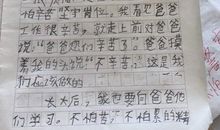 怕辛苦坚守岗位。我看见爸爸
工作很辛苦，就走上前对爸爸
说“爸爸您们辛苦了。”爸爸摸
着我的头说“不辛苦，这是我
们应该做的
长大后，我也要向爸爸他
们学习。不怕苦，不怕累的精